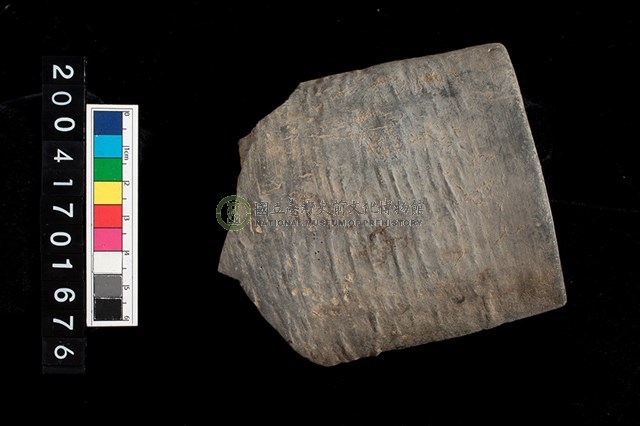 20041701676
0
1cm
2
3
4
5
6
國立臺灣史前文化博物館
NATIONAL MUSEUM OF PREHISTORY